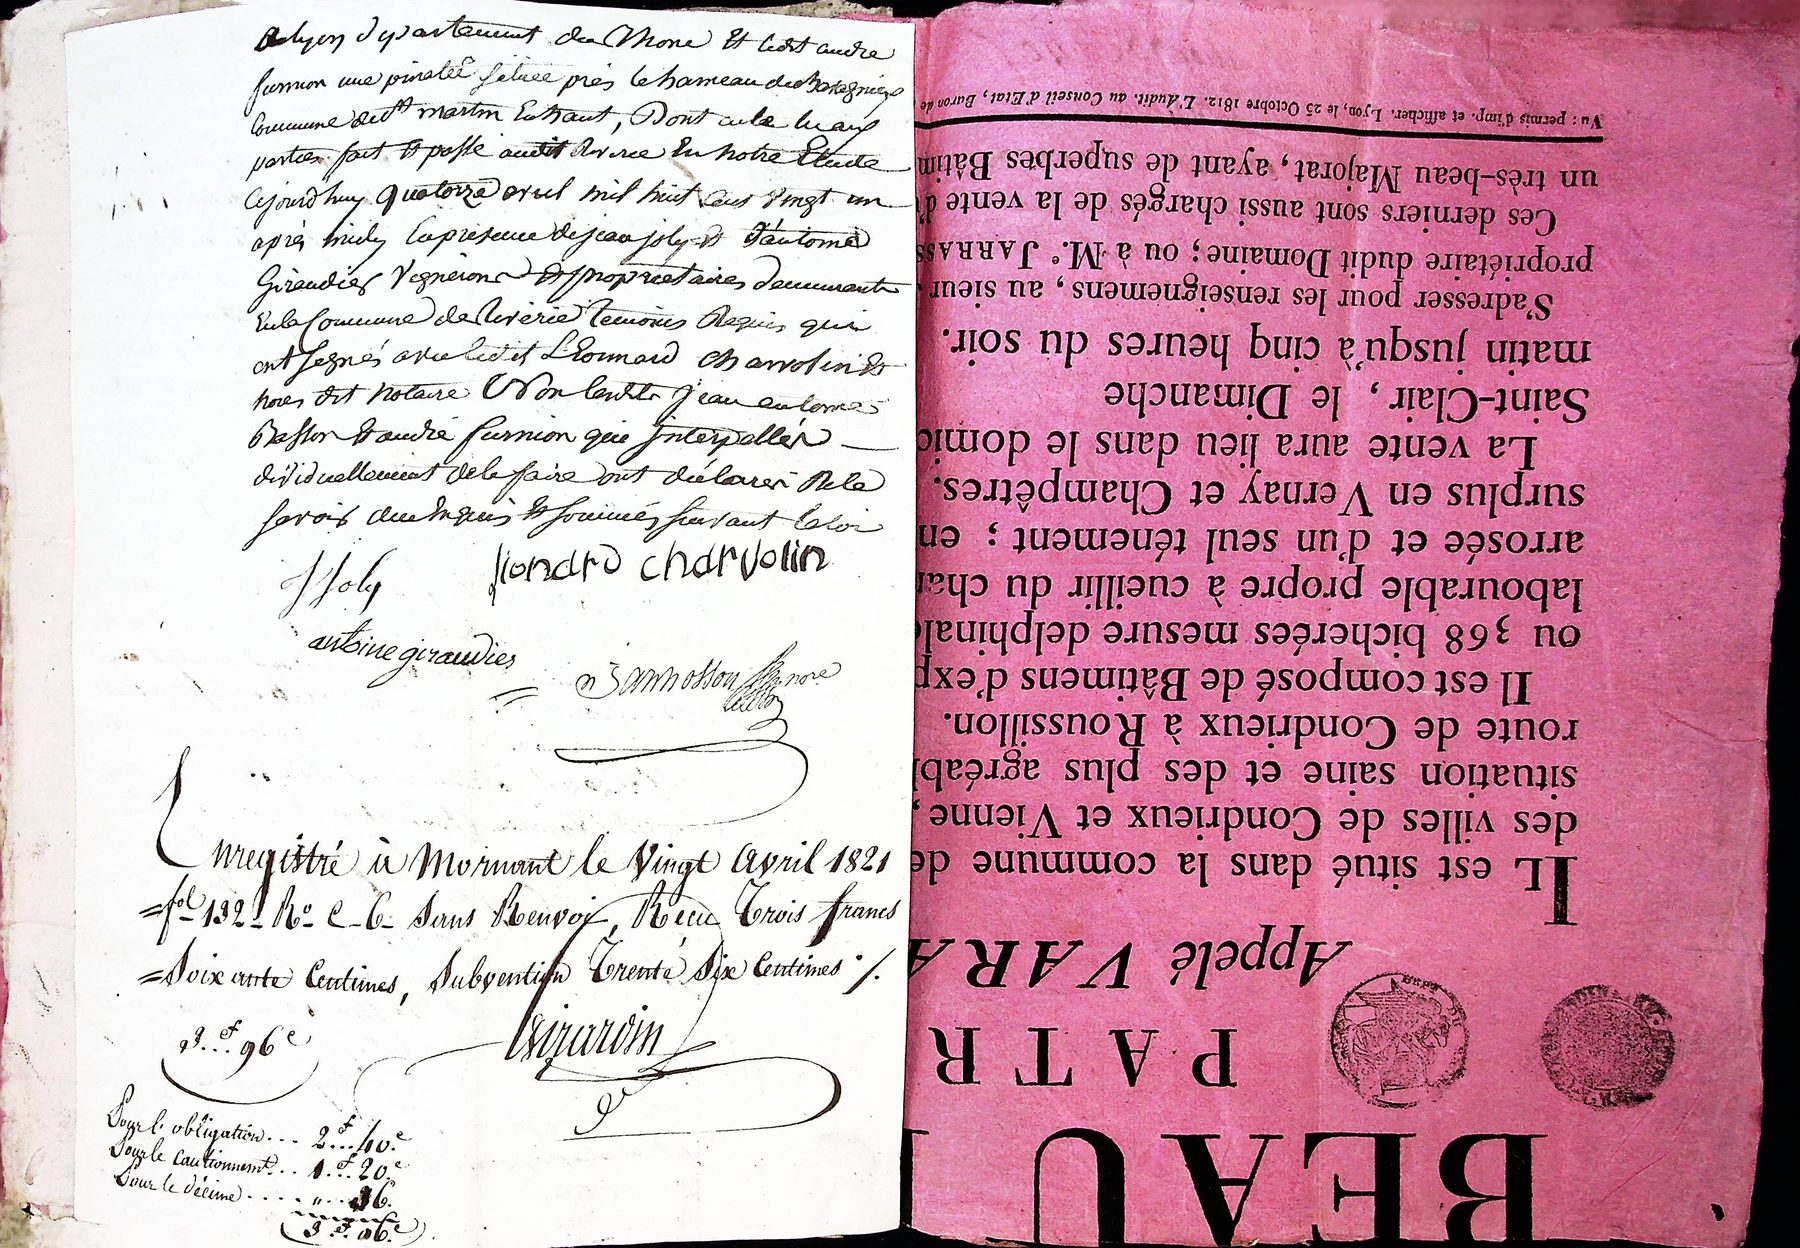 a lyon departement du Rhone Et ledit andre
furnion une pinatee situee près le hameau du
Commune de St martin En haut, Dont acte lu aux
parties fait & passé audit Riverie En notre Etude
cejourd'huy quatorze avril mil huit cent vingt un
après midy En presence de jean joly & d'antoine
Giraudier Vignerons & proprietaires demeurants
En la Commune de Riverie temoins Requis qui
ont signés avec ledit Leonnard Charvolin &
nous dit notaire & Non lesdits jean antoine
Basson & andré furnion qui interpellés
dividuellement de le faire ont déclarés Ne le
savoir de ce Enquis & sommés suivant la loi
J Joly
liondrd chdrvolin
antoine giraudier
nore
Enregistré à Mornant le Vingt avril 1821
=fol 132 Ro C. 6. Sans Renvoi, Reçu Trois francs
=Soixante Centimes, Subvention Trente Six Centimes ./.
3..f 96c
Girardin
Pour l'obligation... 2..f..40.c
Pour le cautionnement... 1..f..20.c
Pour le décime ....."...36.c
3..f..96.c
BEAU
PATR
Appelé VARA
IL est situé dans la commune de
des villes de Condrieux et Vienne,
situation saine et des plus agréabl
route de Condrieux à Roussillon.
Il est composé de Bâtimens d'exp
ou 368 bicherées mesure delphinale
labourable propre à cueillir du chan
arrosée et d'un seul ténement ; en
surplus en Vernay et Champêtres.
La vente aura lieu dans le domic
Saint-Clair, le Dimanche
matin jusqu'à cinq heures du soir.
S'adresser pour les renseignemens, au sieur
propriétaire dudit Domaine; ou à M.e JARRASS
Ces derniers sont aussi chargés de la vente d'
un très-beau Majorat, ayant de superbes Bâtim
Vu : permis d'imp. et afficher. Lyon, le 25 Octobre 1812. L'Audit. au Conseil d'Etat, Baron de